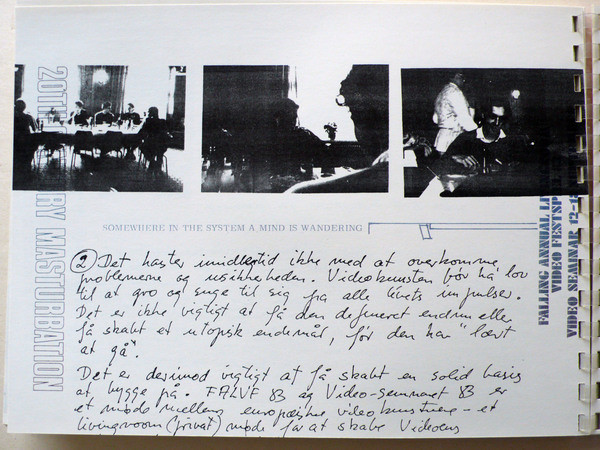 20TH CE RY MASTURBATION
SOMEWHERE IN THE SYSTEM A MIND IS WANDERING
② Det haster imidlertid ikke med at overkomme
problemerne og usikkerheden. Videokunsten bør ha' lov
til at gro og suge til sig fra alle livets impulser.
Det er ikke vigtigt at få den defineret endnu eller
få skabt et utopisk endemål, før den har "lært
at gå".
Det er derimod vigtigt at få skabt en solid basis
at bygge på. FALVF 83 og Video-seminaret 83 er
et møde mellem europæiske videokunstnere - et
livingroom (privat) møde for at skabe Videoens
FALLANG ANNUAL LI
VIDEO FESTSP
VIDEO SEMINAR 12-1